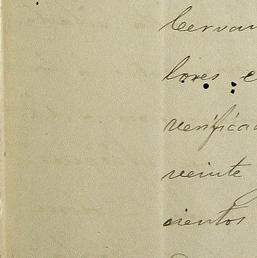 Cervan
lores e
verifica
veinte
cientos